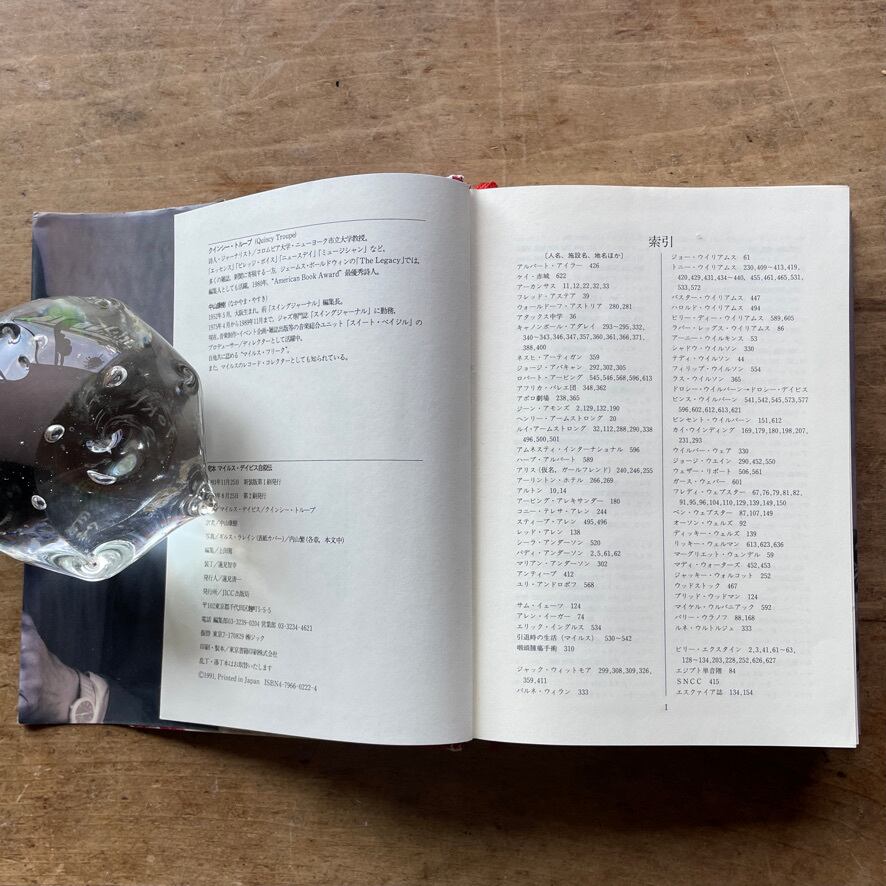 クインシー・トループ (Quincy Troupe)
詩人・ジャーナリスト/コロムビア大学・ニューヨーク市立大学教授。
「エッセンス」「ビレッジ・ボイス」「ニュースデイ」「ミュージシャン」など、
多くの雑誌、新聞に寄稿する一方、ジェームス・ボールドウィンの「The Legacy」では、
編集人としても活躍。1980年、"American Book Award" 最優秀詩人。
中山康樹 (なかやま・やすき)
1952年5月、大阪生まれ。前「スイングジャーナル」編集長。
1975年4月から1989年11月まで、ジャズ専門誌「スイングジャーナル」に勤務。
現在、音楽制作・イベント企画・雑誌出版等の音楽総合ユニット「スイート・ベイジル」の
プロデューサー/ディレクターとして活躍中。
自他共に認める“マイルス・フリーク”。
また、マイルスのレコード・コレクターとしても知られている。
マイルス・デイビス自叙伝
11月25日 新装版第1刷発行
月25日 第2刷発行
マイルス・デイビス/クインシー・トループ
訳者/中山康樹
写真/ギルス・ラレイン(表紙カバー)/内山繁(各章、本文中)
編集/
装丁/蓮見智幸
発行人/蓮見清一
発行所/JICC出版局
〒102東京都千代田区麹町1-5-5
電話 編集部03-3239-0204 営業部 03-3234-4621
振替 東京7-170829 ㈱ジック
印刷・製本/東京書籍印刷株式会社
乱丁・落丁本はお取替いたします
©1991, Printed in Japan ISBN4-7966-0222-4
索引
[人名、施設名、地名ほか]
アルバート・アイラー 426
ケイ・赤城 622
アーカンサス 11,12,22,32,33
フレッド・アステア 39
ウォールドーフ・アストリア 280,281
アタックス中学 36
キャノンボール・アダレイ 293−295,332,
340−343,346,347,357,360,361,366,371,
388,400
ネスヒ・アーティガン 359
ジョージ・アバキャン 292,302,305
ロバート・アービング 545,546,568,596,613
アフリカ・バレエ団 348,362
アポロ劇場 238,365
ジーン・アモンズ 2,129,132,190
ヘンリー・アームストロング 20
ルイ・アームストロング 32,112,288,290,338
496,500,501
アムネスティ・インターナショナル 596
ハーブ・アルパート 589
アリス(仮名、ガールフレンド) 240,246,255
アーリントン・ホテル 266,269
アルトン 10,14
アービング・アレキサンダー 180
コニー・テレサ・アレン 244
スティーブ・アレン 495,496
レッド・アレン 138
シーラ・アンダーソン 520
バディ・アンダーソン 2,5,61,62
マリアン・アンダーソン 302
アンティーブ 412
ユリ・アンドロポフ 568
サム・イェーツ 124
アレン・イーガー 74
エリック・イングルス 534
引退時の生活(マイルス) 530−542
咽頭腫瘍手術 310
ジャック・ウィットモア 299,308,309,326,
359,411
バルネ・ウィラン 333
ジョー・ウイリアムス 61
トニー・ウイリアムス 230,409−413,419,
420,429,431,434−440,455,461,465,531,
533,572
バスター・ウイリアムス 447
ハロルド・ウイリアムス 494
ビリー・ディー・ウイリアムス 589,605
ラバー・レッグス・ウイリアムス 86
アーニー・ウイルキンス 53
シャドウ・ウイルソン 330
テディ・ウイルソン 44
フィリップ・ウイルソン 554
ラス・ウイルソン 365
ドロシー・ウイルバーン→ドロシー・デイビス
ビンス・ウイルバーン 541,542,545,573,577
596,602,612,613,621
ビンセント・ウイルバーン 151,612
カイ・ウインディング 169,179,180,198,207,
231,293
ウイルバー・ウェア 330
ジョージ・ウエイン 290,452,550
ウェザー・リポート 506,561
ガース・ウェバー 601
フレディ・ウェブスター 67,76,79,81,82,
91,95,96,104,110,129,139,149,150
ベン・ウェブスター 87,107,149
オーソン・ウェルズ 92
ディッキー・ウェルズ 139
リッキー・ウェルマン 613,623,636
マーグリエット・ウェンデル 59
マディ・ウォーターズ 452,453
ジャッキー・ウォルコット 252
ウッドストック 467
ブリッド・ウッドマン 124
マイケル・ウルバニアック 592
バリー・ウラノフ 88,168
ルネ・ウルトルジュ 333
ビリー・エクスタイン 2,3,41,61−63,
128−134,203,228,252,626,627
エジプト単音階 84
SNCC 415
エスクァイア誌 134,154
1